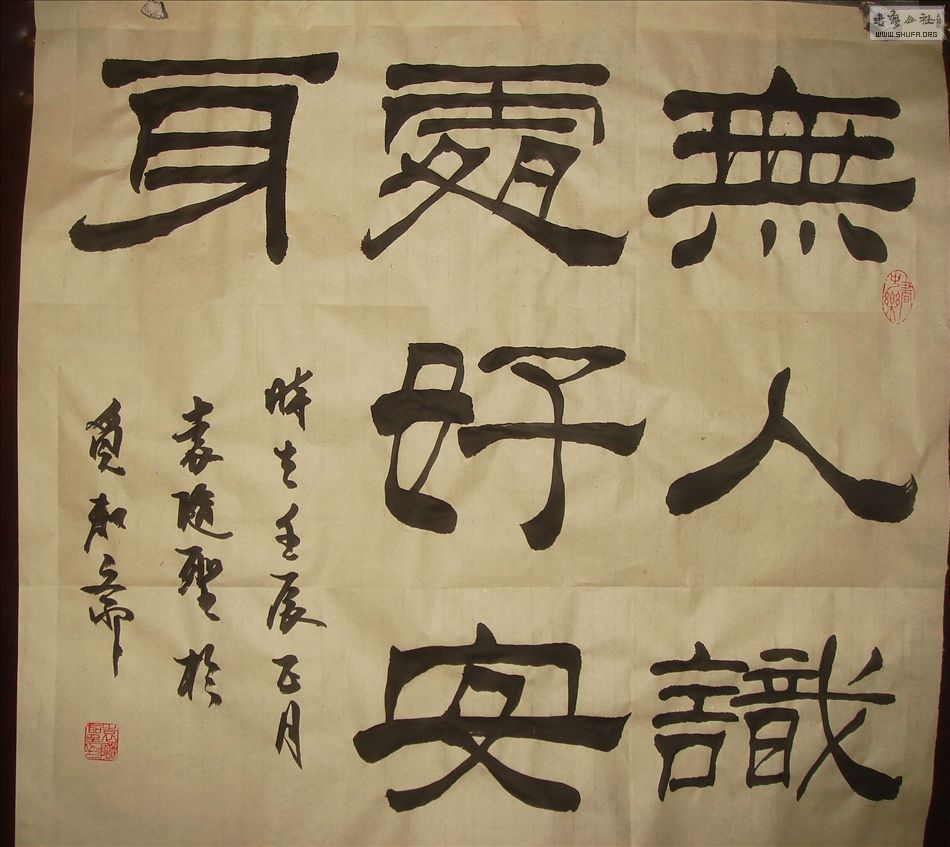 書藝公社
WWW.SHUFA.ORG
無人識
處好安
身
時在壬辰正月
袁隨聖於
覓知齋